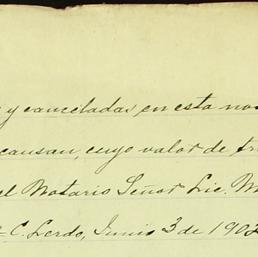 y canceladas en esta no
causan, cuyo valor de tr
el Notario Señor Lic. M
C. Lerdo, Junio 3 de 190